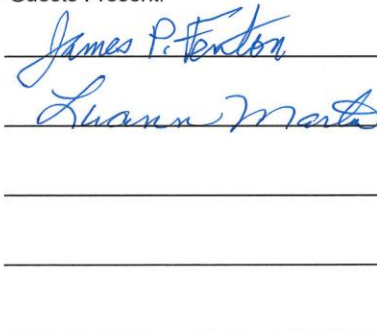 Guests Present:
James P. Fenton
Luann Marta